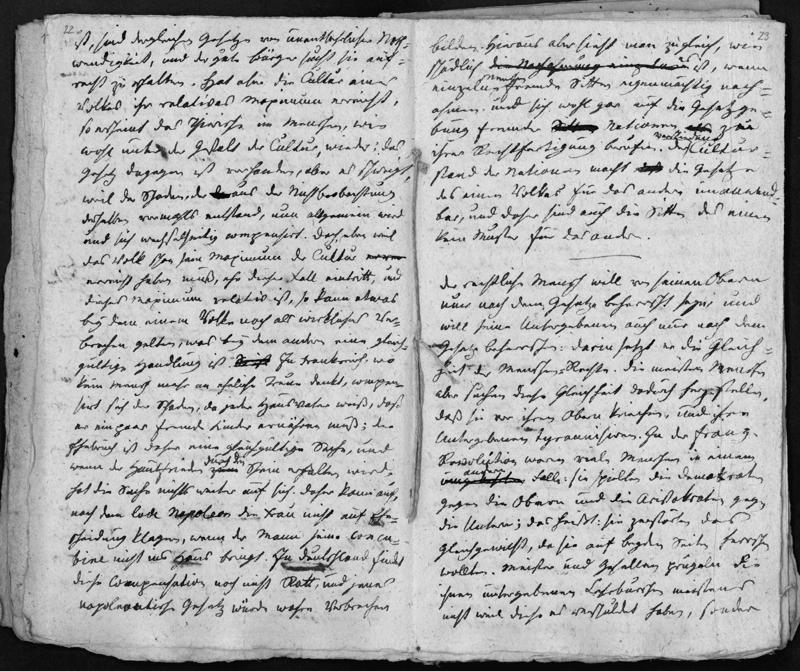 22
ist, sind dergleichen Gesetze von unentbehrlicher Noth-
wendigkeit, und der gute Bürger sucht sie auf-
recht zu erhalten. Hat aber die Cultur eines
Volkes ihr relatives Maximum erreicht,
so erscheint das Thierische im Menschen, wie-
wohl unter der Gestalt der Cultur, wieder; das
Gesetz dagegen ist vorhanden, aber es schweigt,
weil der Schaden, der aus der Nichtbeobachtung
desselben vormahls entstand, nun allgemein wird
und sich wechselseitig compensirt. Doch eben weil
das Volk schon sein Maximum der Cultur
erreicht haben muß, ehe dieser Fall eintritt, und
dieses Maximum relativ ist, so kann etwas
bey dem einem Volke noch als wirkliches Ver-
brechen gelten, was bey dem andern eine gleich-
gültige Handlung ist. In Frankreich, wo
kein Mensch mehr an eheliche Treue denkt, compen-
sirt sich der Schaden, da jeder Hausvater weiß, daß
er ein paar fremde Kinder ernähren muß; der
Ehebruch ist daher eine gleichgültige Sache, und
wenn der Hausfrieden durch den Schein erhalten wird,
hat die Sache nichts weiter auf sich. Daher kann auch
nach dem Code Napoleon die Frau nicht auf Ehe-
scheidung klagen, wenn der Mann seine Concu-
bine nicht ins Haus bringt. In Deutschland findet
diese Compensation noch nicht Statt, und jenes
napoleonische Gesetz würde wahre Verbrechen
23
bilden. Hieraus aber sieht man zugleich, wie
schädlich es ist, wenn
einzelne Menschen fremde Sitten eigenmächtig nach-
ahmen und sich wohl gar auf die Gesetzge-
bung fremder Nationen zur
ihrer Rechtfertigung berufen. Der verschiedene Cultur-
stand der Nationen macht die Gesetze
des einen Volkes für das andere unanwend-
bar, und daher sind auch die Sitten des einen
kein Muster für das andre.
Der rechtliche Mensch will von seinen Obern
nur nach dem Gesetze beherrscht seyn, und
will seine Untergebenen auch nur nach dem
Gesetz beherrschen: darin setzt er die Gleich-
heit der Menschen-Rechte. Die meisten Menschen
aber suchen diese Gleichheit dadurch herzustellen,
daß sie vor ihren Obern kriechen, und ihre
Untergebenen tyrannisiren. In der franz.
Revolution waren viele Menschen in einem
andern Falle: sie spielten die Demokraten
gegen die Obern und die Aristokraten gegen
die Untern; das heißt: sie zerstörten das
Gleichgewicht, da sie auf beyden Seiten herrschen
wollten. Meister und Gesellen prügeln die
ihnen untergebenen Lehrburschen meistens
nicht weil diese es verschuldet haben, sondern